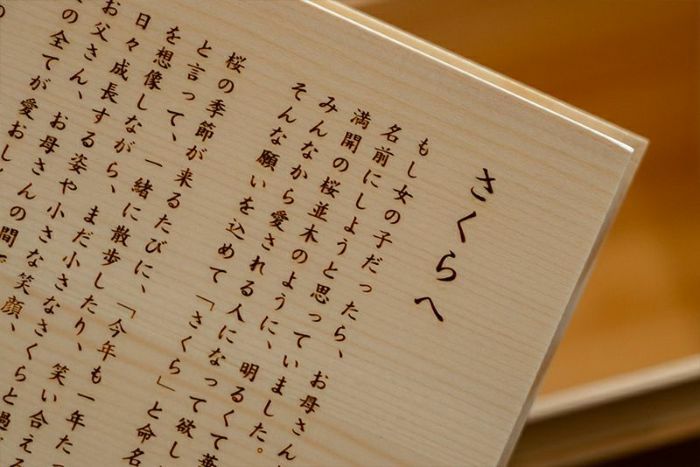 さくらへ
もし女の子だったら、お母さん
名前にしようと思っていました。
満開の桜並木のように、明るくて華
みんなから愛される人になって欲し
そんな願いを込めて「さくら」と命名
桜の季節が来るたびに、「今年も一年た
と言って、一緒に散歩したり、笑い合える
を想像しながら、まだ小さなさくらと過
日々成長する姿や小さな笑顔、
お父さん、お母さんの間を
の全てが愛おし